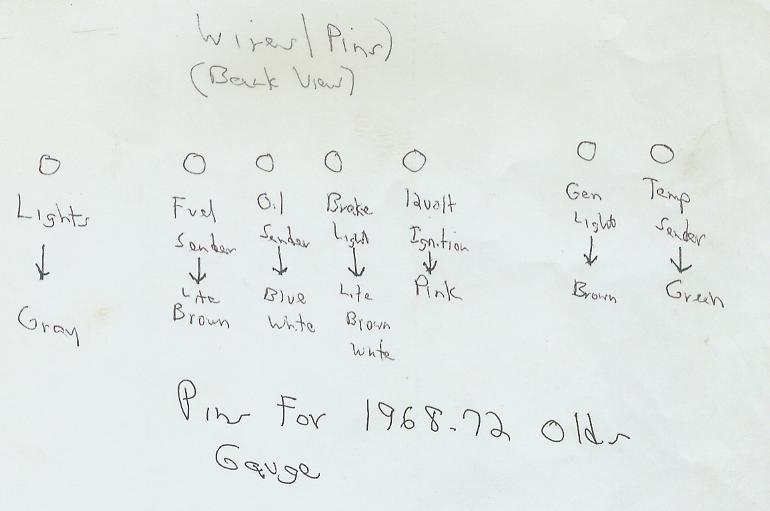 Wires/Pins)
(Back View)
Lights
Gray
Fuel
Sender
Lite
Brown
Oil
Sender
Blue
White
Brake
Light
Lite
Brown
White
12volt
Ignition
Pink
Gen
Light
Brown
Temp
Sender
Green
Pins For 1968-72 Olds
Gauge